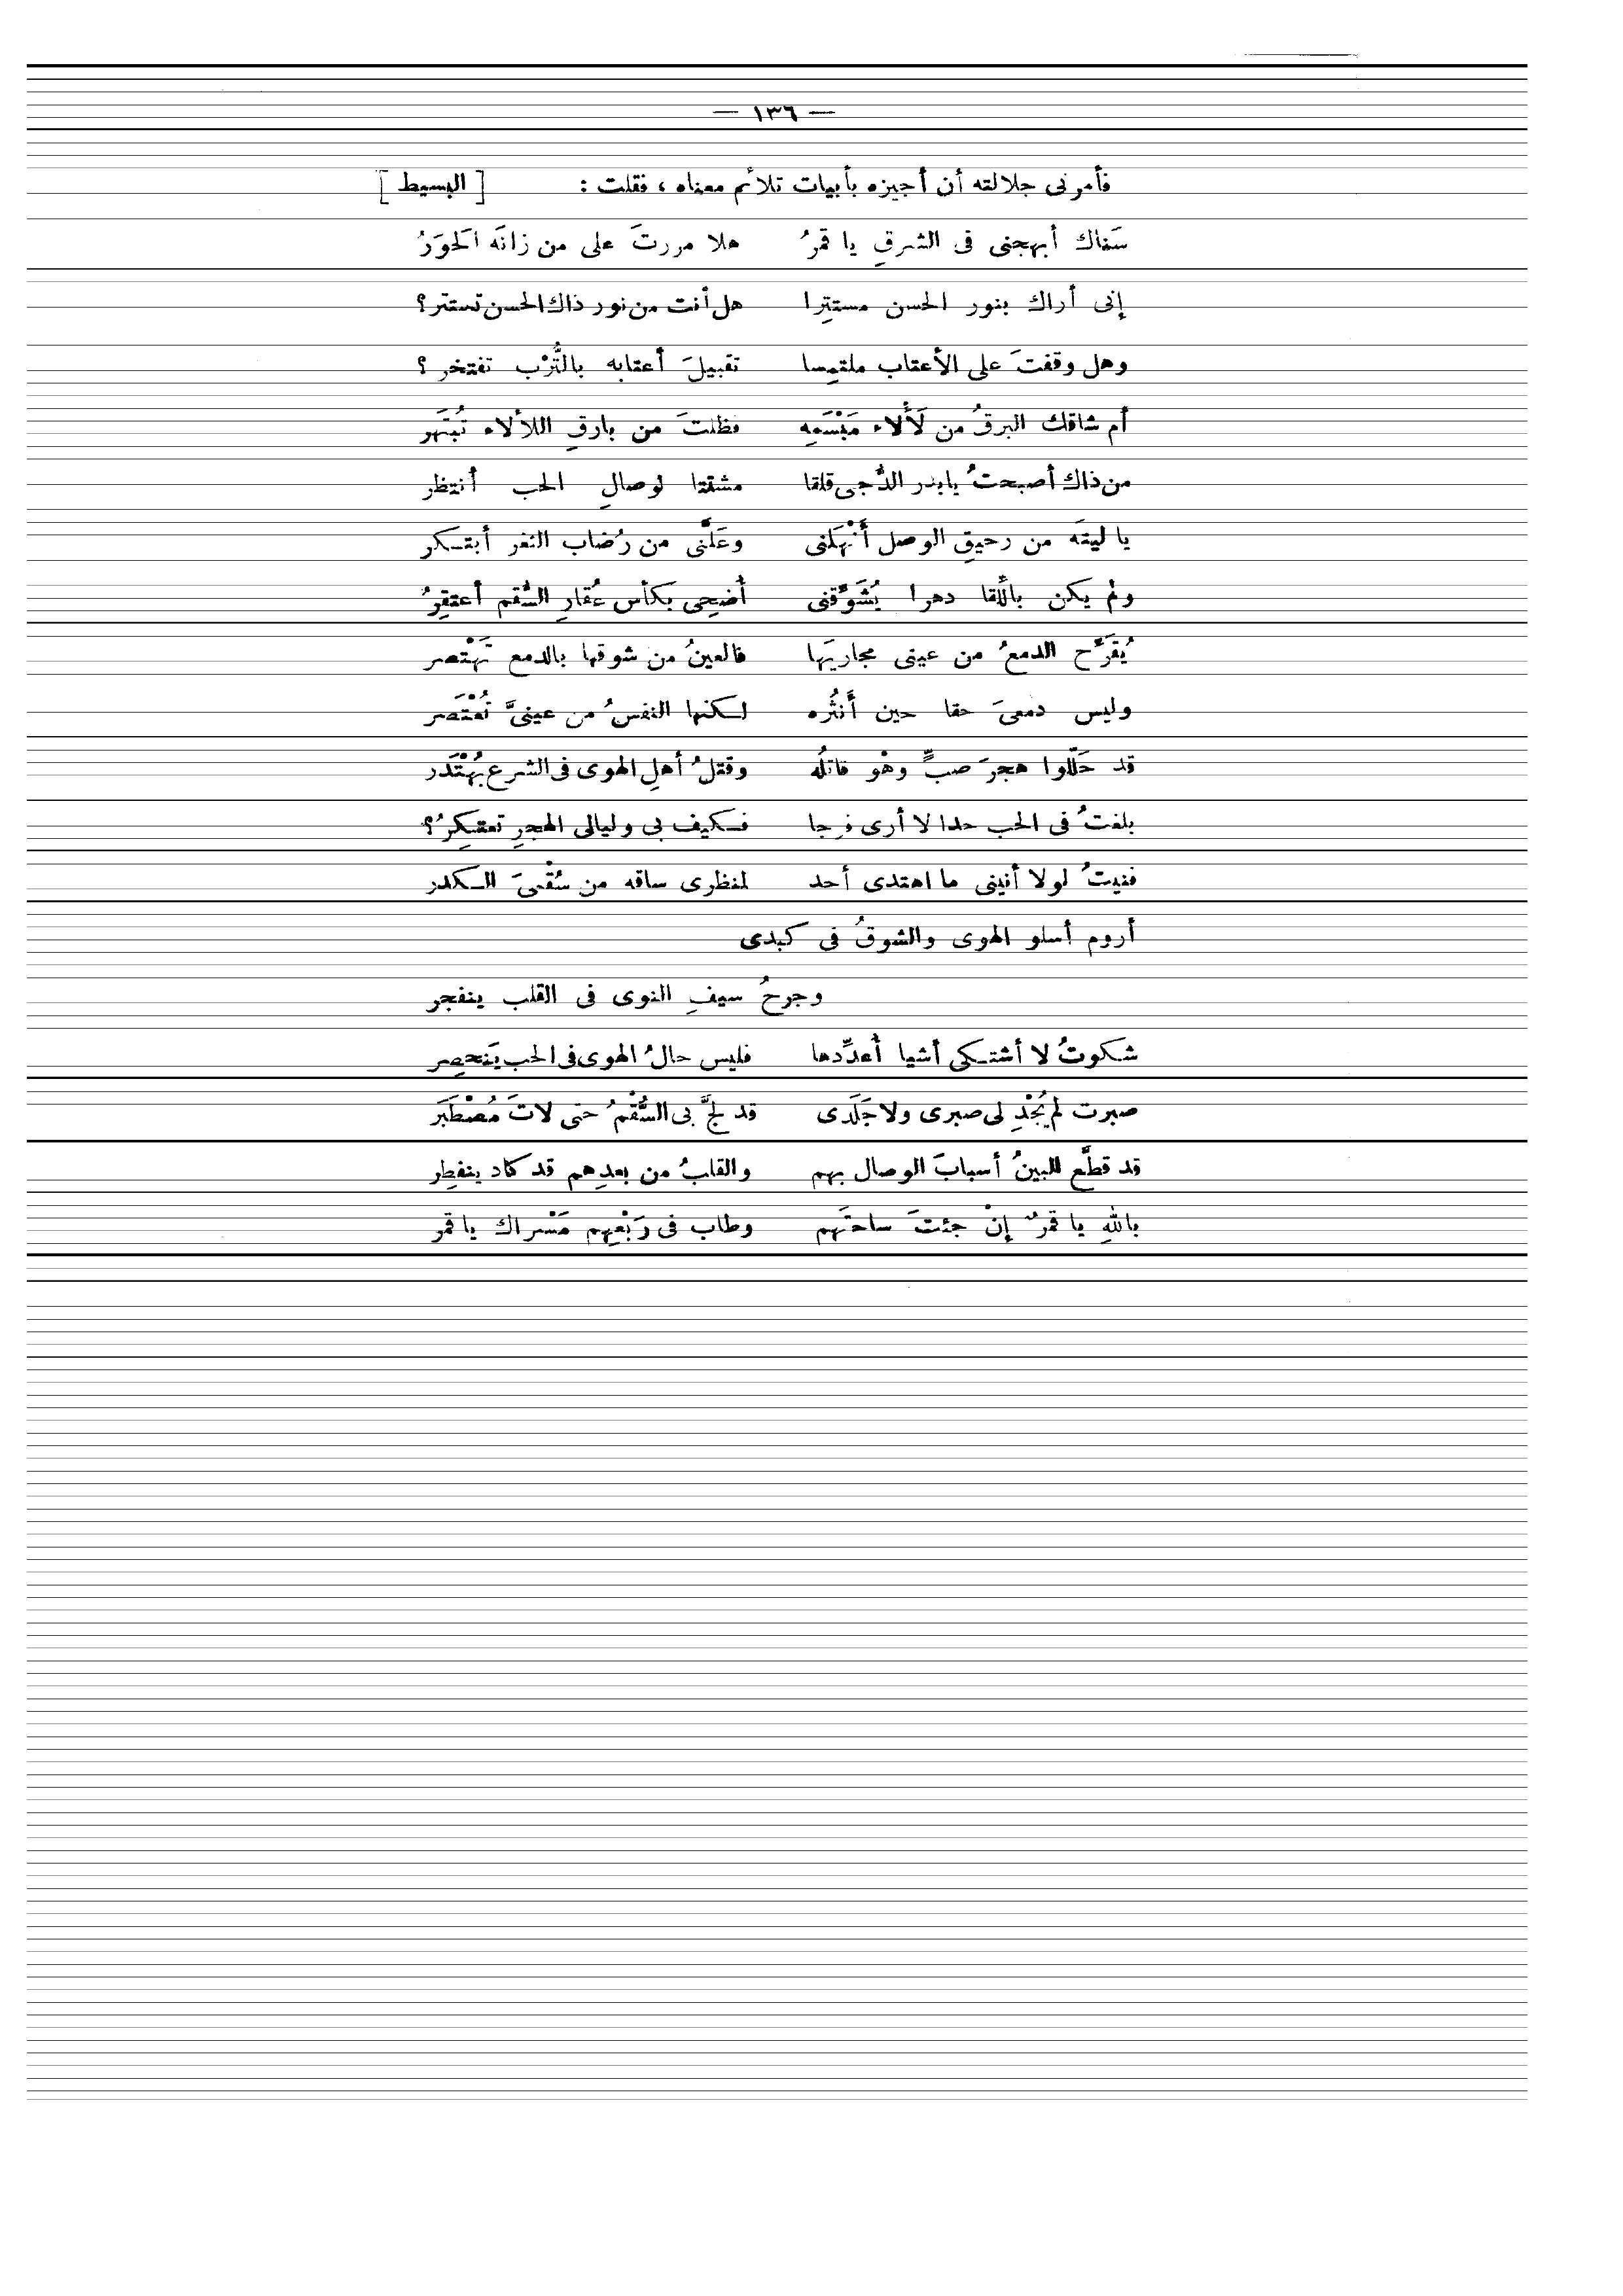 — ١٣٦ —
فأمرنى جلالته أن أجيزه بأبيات تلائم معناه ، فقلت : [ البسيط ]
سَناك أبهجنى فى الشرقِ يا قمرُ هلا مررتَ على من زانَه الَحوَرُ
إنى أراك بنور الحسن مستتِرا هل أنت من نور ذاك الحسن تستتر؟
وهل وقفتَ على الأعتاب ملتمِسا تقبيلَ أعتابه بالتُّرْب تفتخر ؟
أم شاقك البرقُ من لَأْلاء مَبْسَمِه فظلتَ من بارقِ اللألاء تُبتَهر
من ذاك أصبحتُ يا بدر الدُّجى قلقا مشقتا لوصالِ الحب أنتظر
يا ليتَه من رحيقِ الوصل أَنْهَلنى وعَلَّنى من رُضاب الثغر أبتكر
ولم يكن باللِّقا دهرا يُشَوِّقنى أضحِى بكأس عُقارِ السُّقم أعتقِرُ
يُقَرِّح الدمعُ من عينى مجاريَها فالعينُ من شوقها بالدمع تَهْتصر
وليس دمعىَ حقا حين أَنثُره لكنها النفسُ من عينىَّ تُعْتَصر
قد حَلّلوا هجرَ صبٍّ وهْو قاتلُه وقتلُ أهلِ الهوى فى الشرع يُهْتَدَر
بلغتُ فى الحب حدا لا أرى فرجا فكيف بى وليالى الهجرِ تعتكِرُ؟
فنيتُ لولا أنينى ما اهتدى أحد لمنظرى ساقه من سُقْمىَ الكدر
أروم أسلو الهوى والشوقُ فى كبدى
وجرحُ سيفِ النوى فى القلب ينفجر
شكوتُ لا أشتكى أشيا أُعدِّدها فليس حالُ الهوى فى الحب يَنحصِر
صبرت لم يُجْدِ لى صبرى ولا جَلَدى قد لجَّ بى السُّقْمُ حتى لاتَ مُصْطَبَر
قد قطَّع البينُ أسبابَ الوصال بهم والقلبُ من بعدِهم قد كاد ينفطِر
باللهِ يا قمرٌ إنْ جئتَ ساحتَهم وطاب فى رَبْعِهم مَسْراك يا قمر